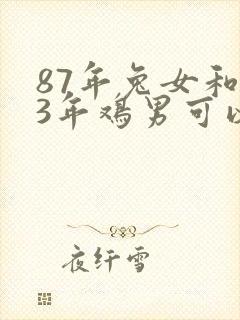 87年兔女和
3年鸡男可以
夜纤雪